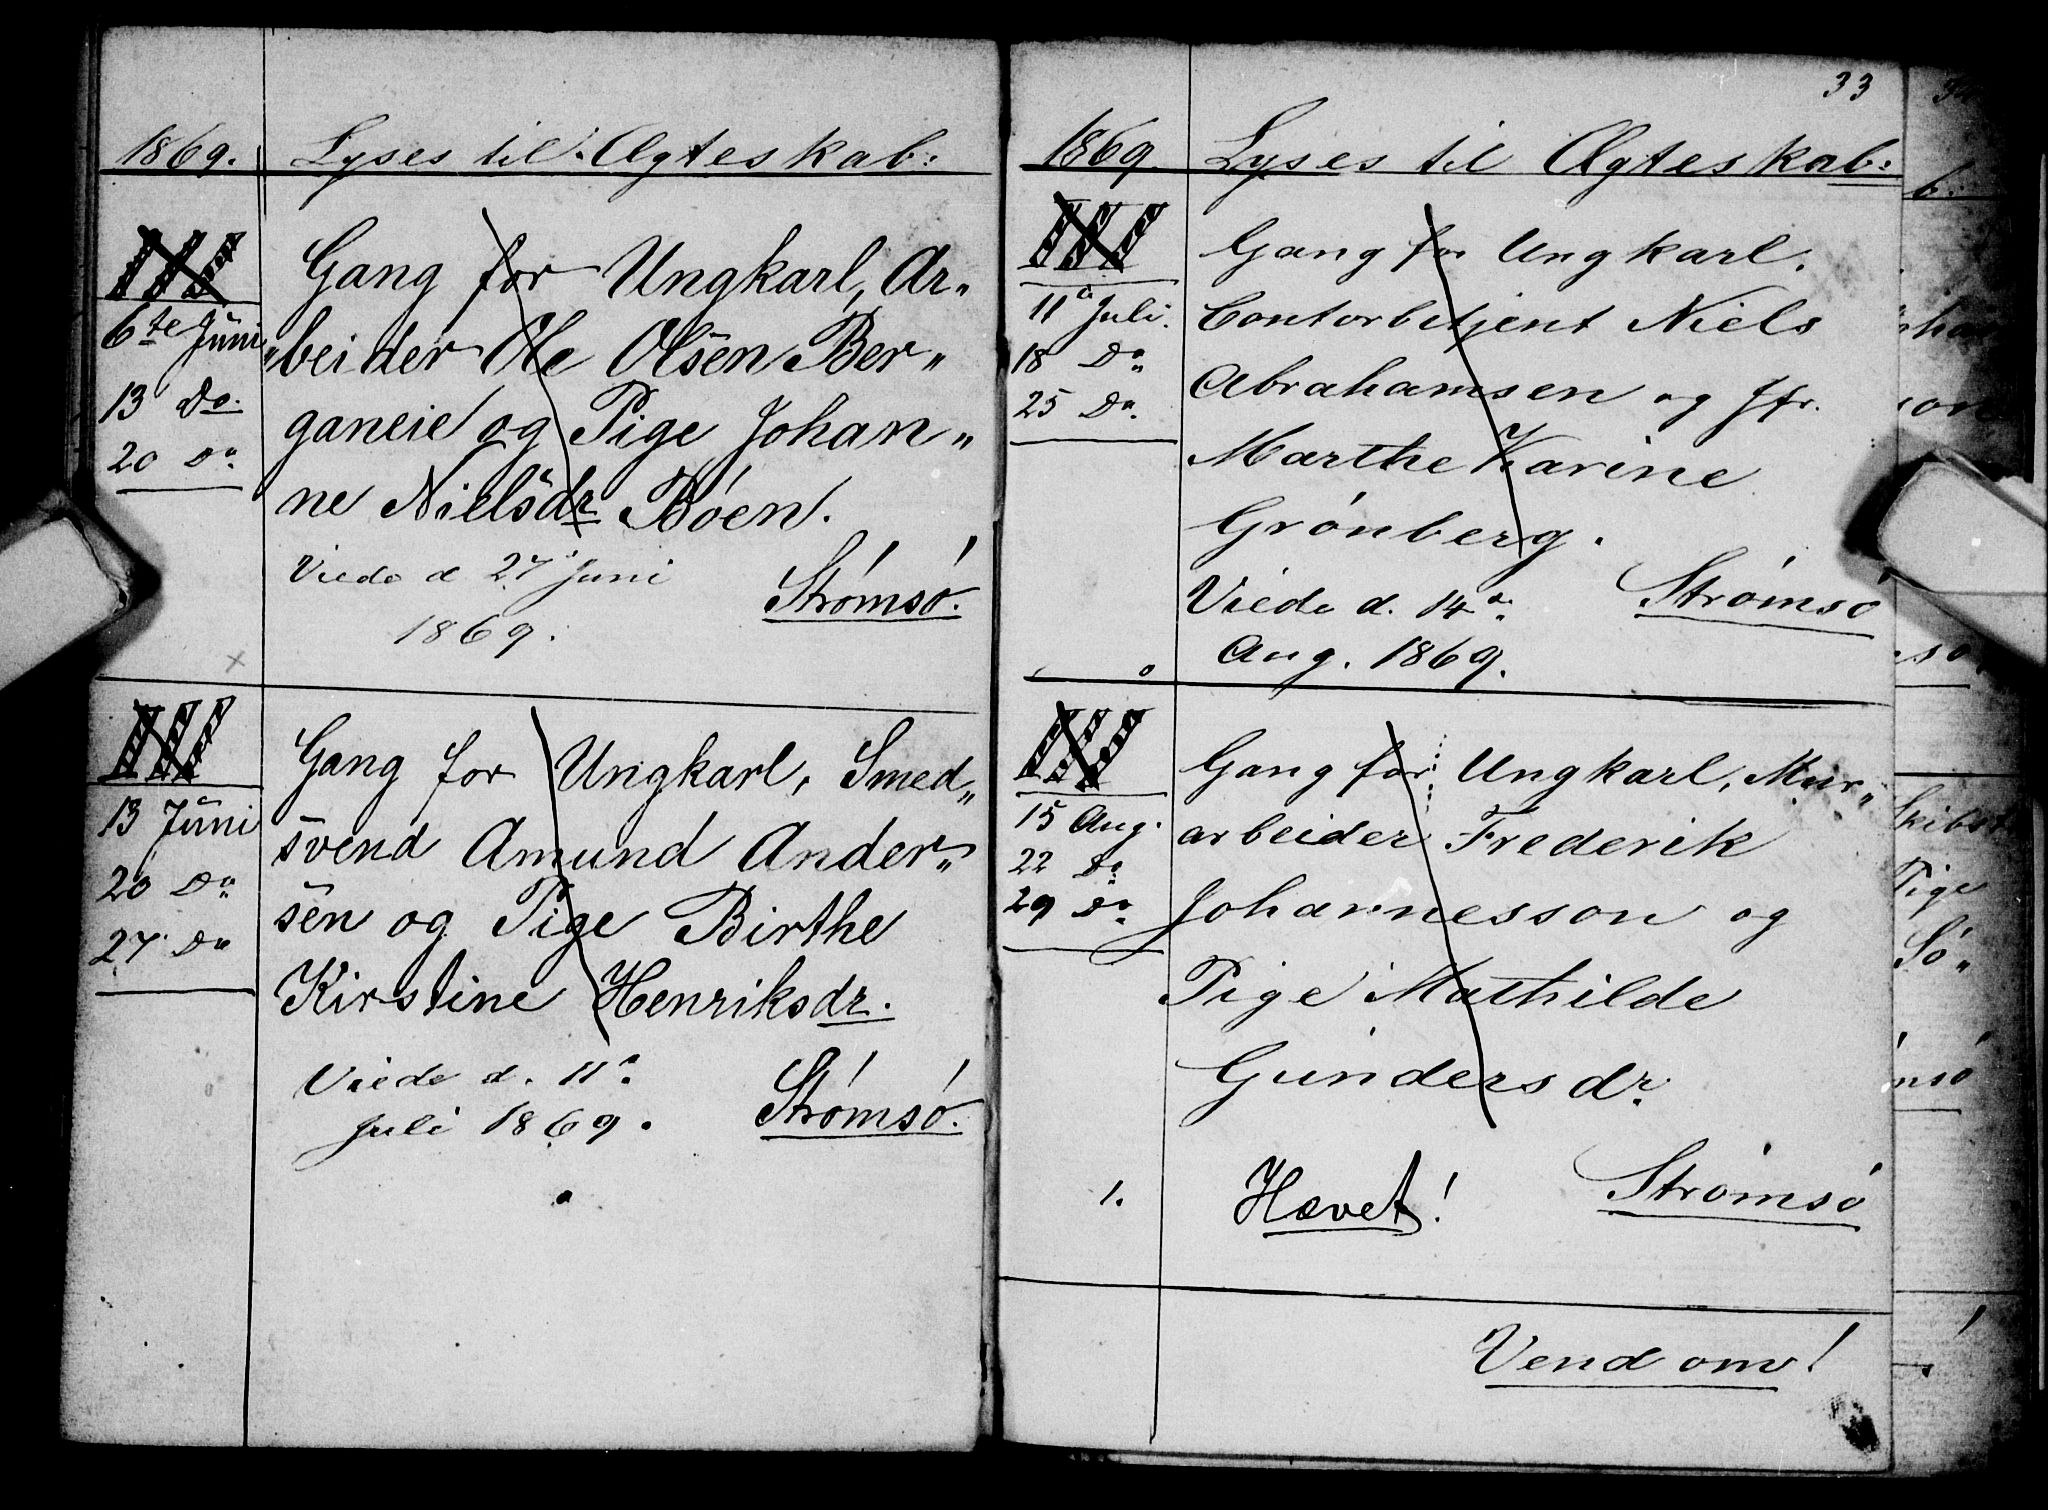 1869. Lyses til Ægteskab:
III
6te Juni
13 Do.
20 Do.
Gang for Ungkarl, Ar„
„beider Ole Olsen Ber„
ganeie og Pige Johan„
ne Nielsdr Bóen.
Viede d 27 Juni
1869.
Strómsó.
III
13 Juni
20 Do
27 Do
Gang for Ungkarl, Smed„
svend Amund Ander„
sen og Pige Birthe
Kirstine Henriksdr.
Viede d. 11.
Juli 1869.
Strómsó.
33
1869 Lyses til Ægteskab:
III
11 Juli.
18 Do
25 Do.
Gang for Ungkarl.
Contorbetjent Niels
Abrahamsen og Jfr.
Marthe Karine
Grónberg.
Viede d. 14.
Aug. 1869.
Strómsó
III
15 Aug.
22 Do
29 Do
Gang for Ungkarl, Mur„
arbeider Frederik
Johannesson og
Pige Mathilde
Gundersdr.
1.
Hævet!
Strómsó
Vend om!
34
b:
Skibst
Pige
Só„
msó